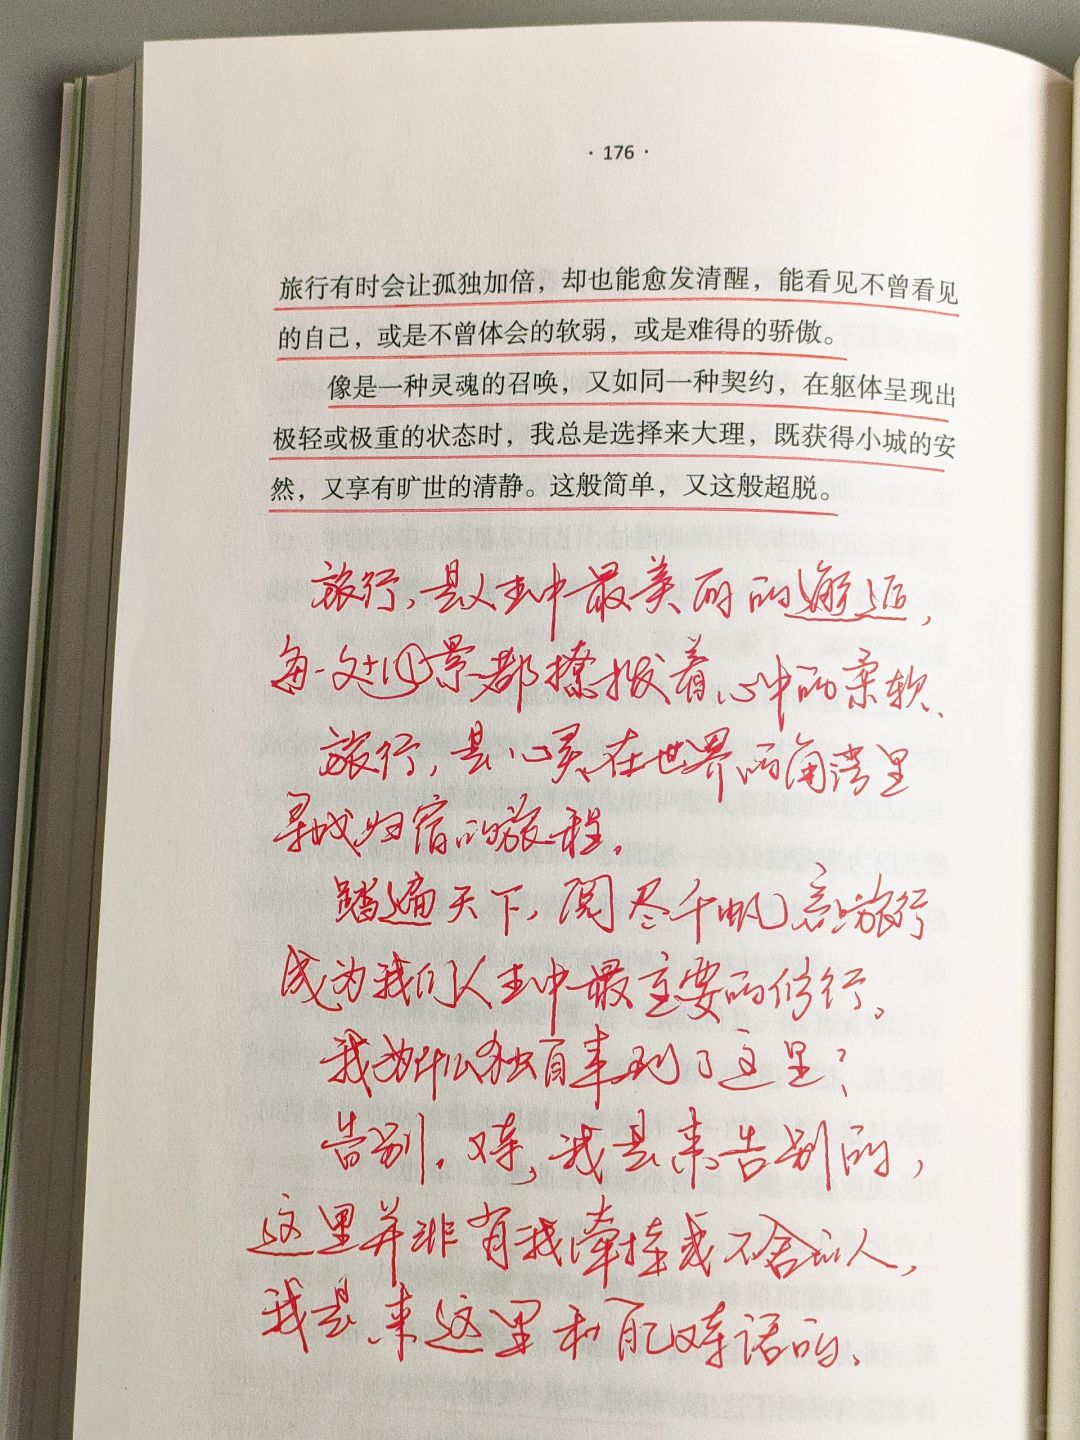 · 176 ·
旅行有时会让孤独加倍，却也能愈发清醒，能看见不曾看见
的自己，或是不曾体会的软弱，或是难得的骄傲。
像是一种灵魂的召唤，又如同一种契约，在躯体呈现出
极轻或极重的状态时，我总是选择来大理，既获得小城的安
然，又享有旷世的清静。这般简单，又这般超脱。
旅行，是人生中最美丽的邂逅，
每一处风景都撩拨着心中的柔软、
旅行，是心灵在世界的角落里
寻找归宿的旅程。
踏遍天下，阅尽千帆，旅行
成为我们人生中最重要的修行。
我为什么独自来到了这里？
告别。对，我是来告别的，
这里并非有我牵挂或不舍的人，
我是来这里和自己对话的、